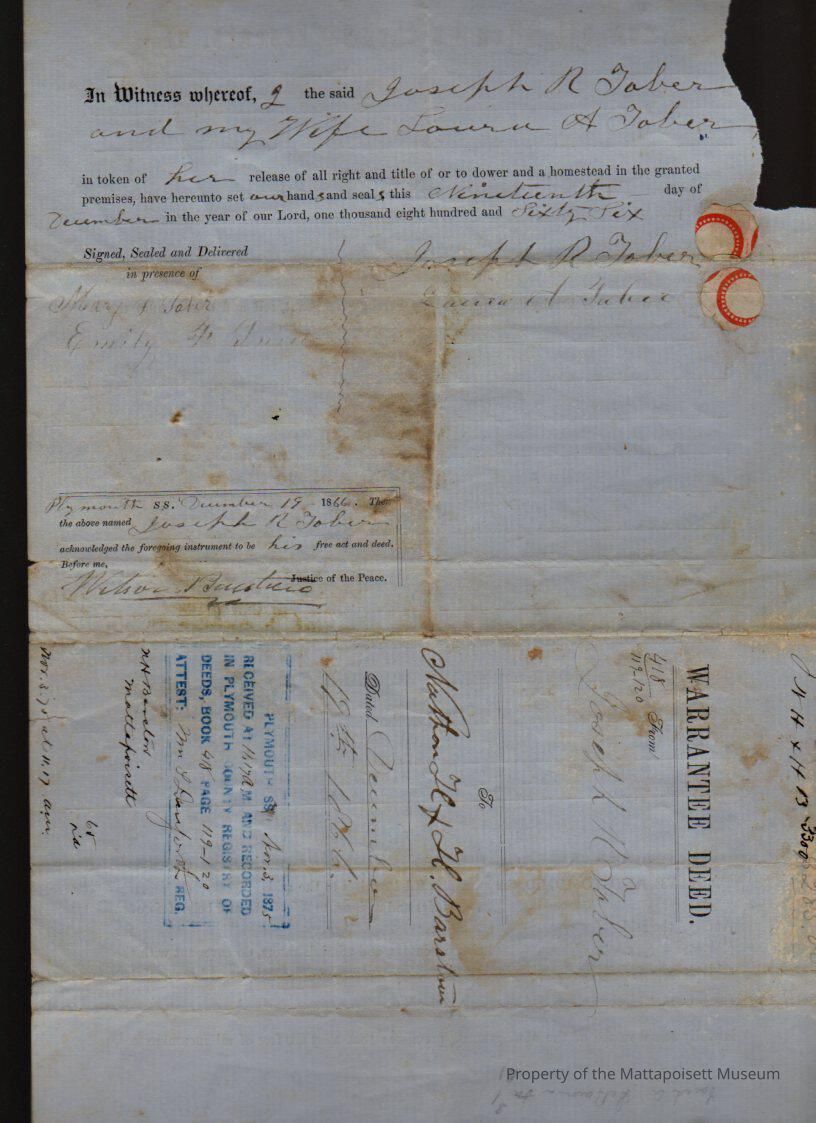 In Witness whereof, I the said Joseph R Taber
and my Wife Laura A Taber
in token of her release of all right and title of or to dower and a homestead in the granted
premises, have hereunto set our hands and seals this Nineteenth day of
December in the year of our Lord, one thousand eight hundred and Sixty Six
Signed, Sealed and Delivered
in presence of
Joseph R Taber
Laura A Taber
Mary Taber
Emily F
Plymouth SS. December 19 1866. Then
the above named Joseph R Taber
acknowledged the foregoing instrument to be his free act and deed.
Before me,
Wilson Barstow Justice of the Peace.
N H & H B 3300
WARRANTEE DEED.
418
119-120
From
Joseph R Taber
To
Nathan H & H. Barstow
Dated December
19th 1866.
PLYMOUTH SS Nov. 3, 1875
RECEIVED AT 11.17 A M. AND RECORDED
IN PLYMOUTH COUNTY REGISTRY OF
DEEDS, BOOK 418 PAGE 119-120
ATTEST: Wm S Danforth REG.
N H Barstow
Mattapoisett
65
Nov. 3, 75 at 11.17 am.
Property of the Mattapoisett Museum